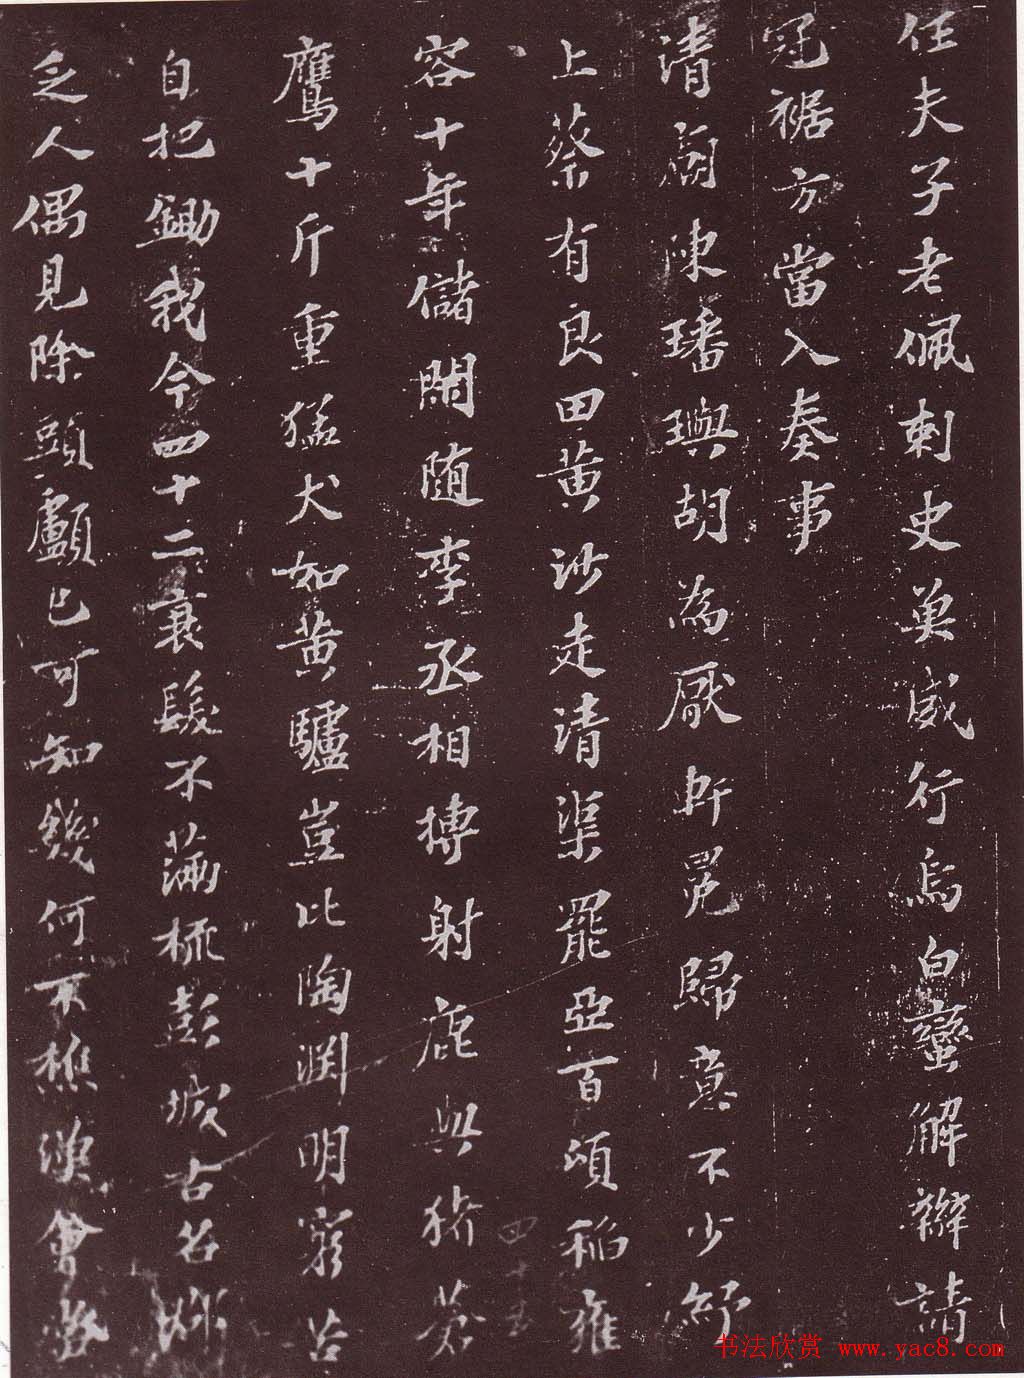 任夫子老佩刺史魚威行烏白蠻解辮請
冠裾方當入奏事
清廟陳璠璵胡為厭軒冕歸意不少紓
上蔡有良田黄沙走清渠罷亞百頃稻雍
容十年儲閑随李丞相搏射鹿與猪蒼
鷹十斤重猛犬如黄驢豈比陶渊明窮苦
自把鋤我今四十二衰髮不滿梳彭城古名郡
乏人偶見除頭顱已可知幾何不樵漁會當
书法欣赏 www.yac8.com